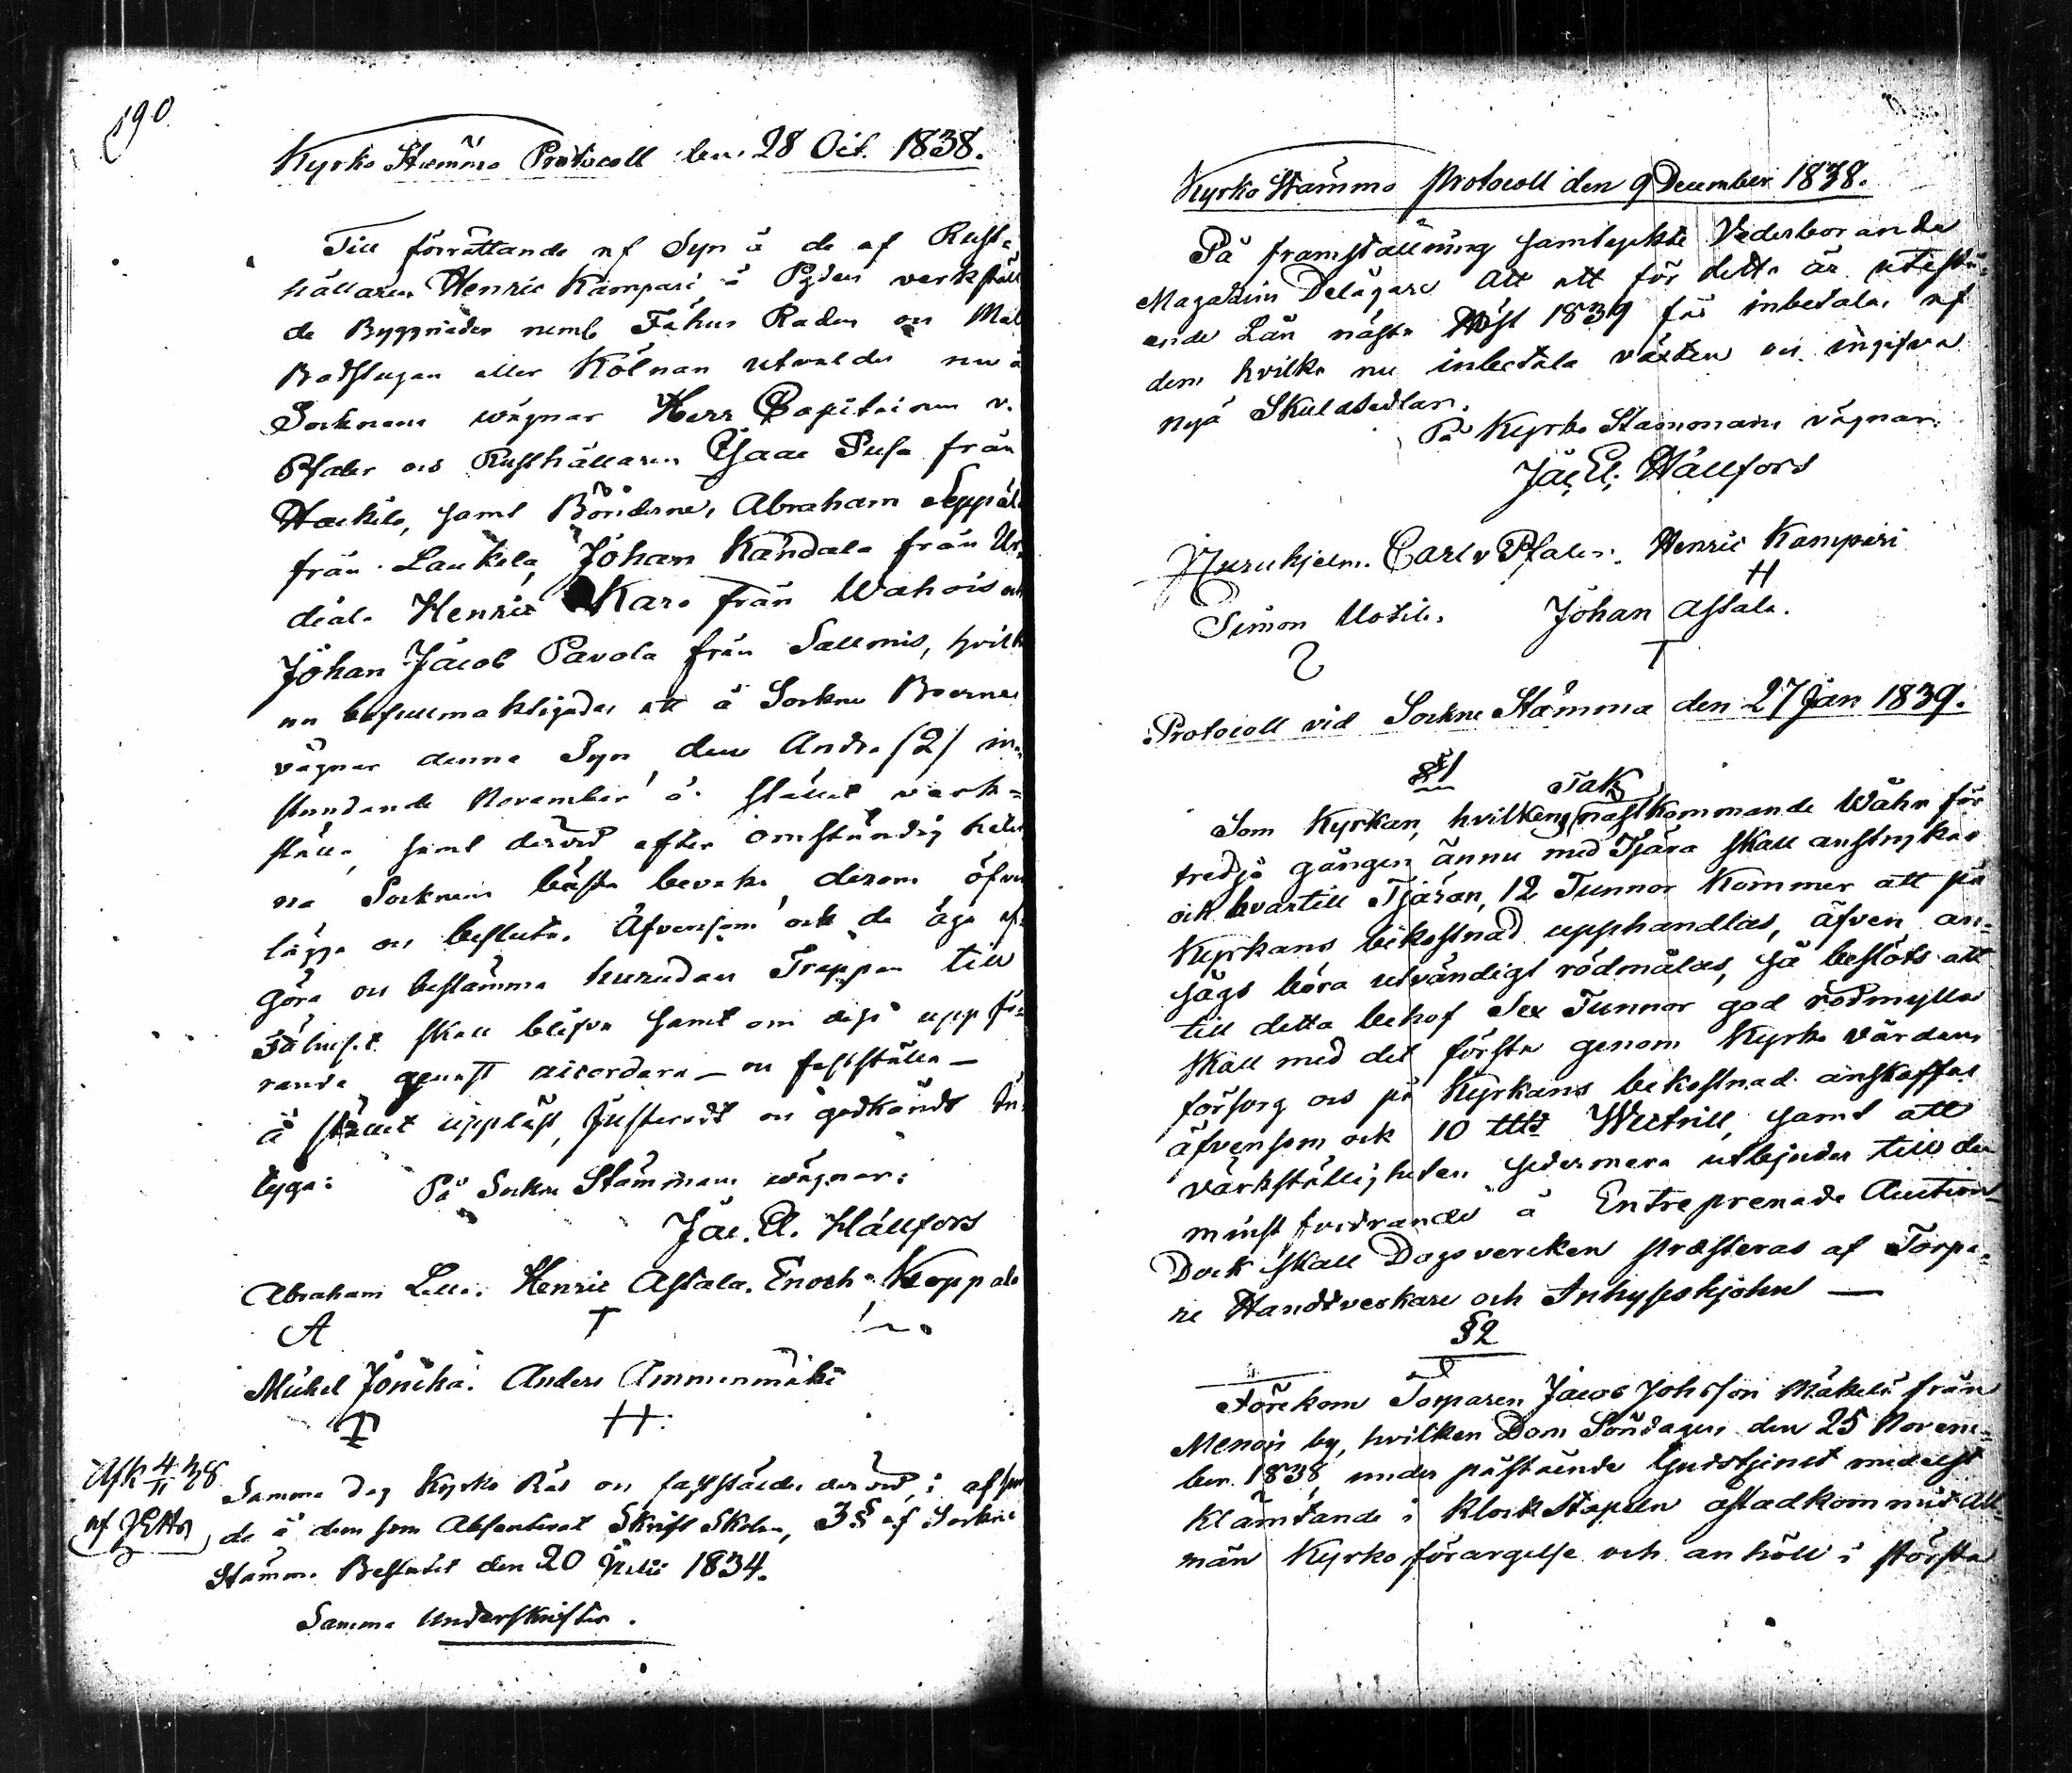 190
Kyrko Stämmo Protocoll den 28 Oct. 1838.
Till förrättande af Syn å de af Rust=
hållaren Henric Kampari i Pyden verkstäl
de Byggnader neml Fähus Raden och Mal
Badstugan eller Kölnan utvaldes nu å
Socknens wägnar Herr Capitainen v.
Pfaler och Rusthållaren Isaac Susa från
Haukila, samt Bönderne, Abraham Seppälä
från Laukela, Johan Kandala från Un,
diala Henric Karo från Wahois och
Johan Jacob Pavola från Sallmis, hvilk
nu befullmäktigades att å Sockne Boernes
vägnar denna Syn den Andra (2) in=
stundande November å stället verk=
ställa, samt dervid efter omständighete
na Socknens bästa bevaka derom öfver
lägga och besluta. Äfvensom ock de äga af=
göra och bestämma hurudan Trappan till
Fähuset skall blifva samt om dess uppfö=
rande genast accordera — och fastställa —
å stället uppläst, Justeradt och godkändt be=
tyga: På Sockne Stämmans wägnar:
Jac. El. Hällfors
Abraham Lilla. Henric Astala. Enoch Noppala
A T
Michel Jönckä. Anders Ammenmäki
H
Afk 4/11 38
af JEHs
Samma dag Kyrko Råd och fastställdes dervid, i afseen
de å dem som Absenterat Skrift Skolan, 3 § af Sockne
Stämmo Beslutet den 20 Julii 1834.
Samma Underskrifter.
Kyrko Stämmo Protocoll den 9 December 1838.
På framställning samtyckte Vederborande
Magazins Delägare Att ett för detta år utestå=
ende Lån nästa Höst 1839 får inbetalas af
dem hvilka nu inbetala växten och ingifva
nya Skuldsedlar.
På Kyrko Stämmans vägnar:
Jac. El. Hällfors
Furuhjelm. Carl v Pfaler. Henric Kampari
H
Simon Uotila. Johan Astala.
T
Protocoll vid Sockne Stämma den 27 Jan 1839.
§1
Tak
Som Kyrkan, hvilkens nästkommande Wåhr för
tredje gången ännu med Tjära skall anstrykas
och hvartill Tjäran, 12 Tunnor kommer att på
Kyrkans bekostnad upphandlas, äfven an=
sågs böra utvändigt rödmålas, så beslöts att
till detta behof Sex Tunnor god rödmylla
skall med det första genom Kyrko Värdens
försorg och på Kyrkans bekostnad anskaffas
äfvensom ock 10 ttt Wictrill, samt att
värkställigheten sedermera utbjudes till den
minst fordrande å Entreprenade Auction
Dock skall Dagsvercken præsteras af Torpa=
re Handtverkare och Inhyseshjohn —
§2
Förekom Torparen Jacob Johsson Mäkelä från
Menois by, hvilken Dom Söndagen den 25 Novem=
ber 1838, under påstående Gudstjenst medelst
Klämtande i Klock Stapeln åstadkommit All=
män Kyrko förargelse och anhöll i största